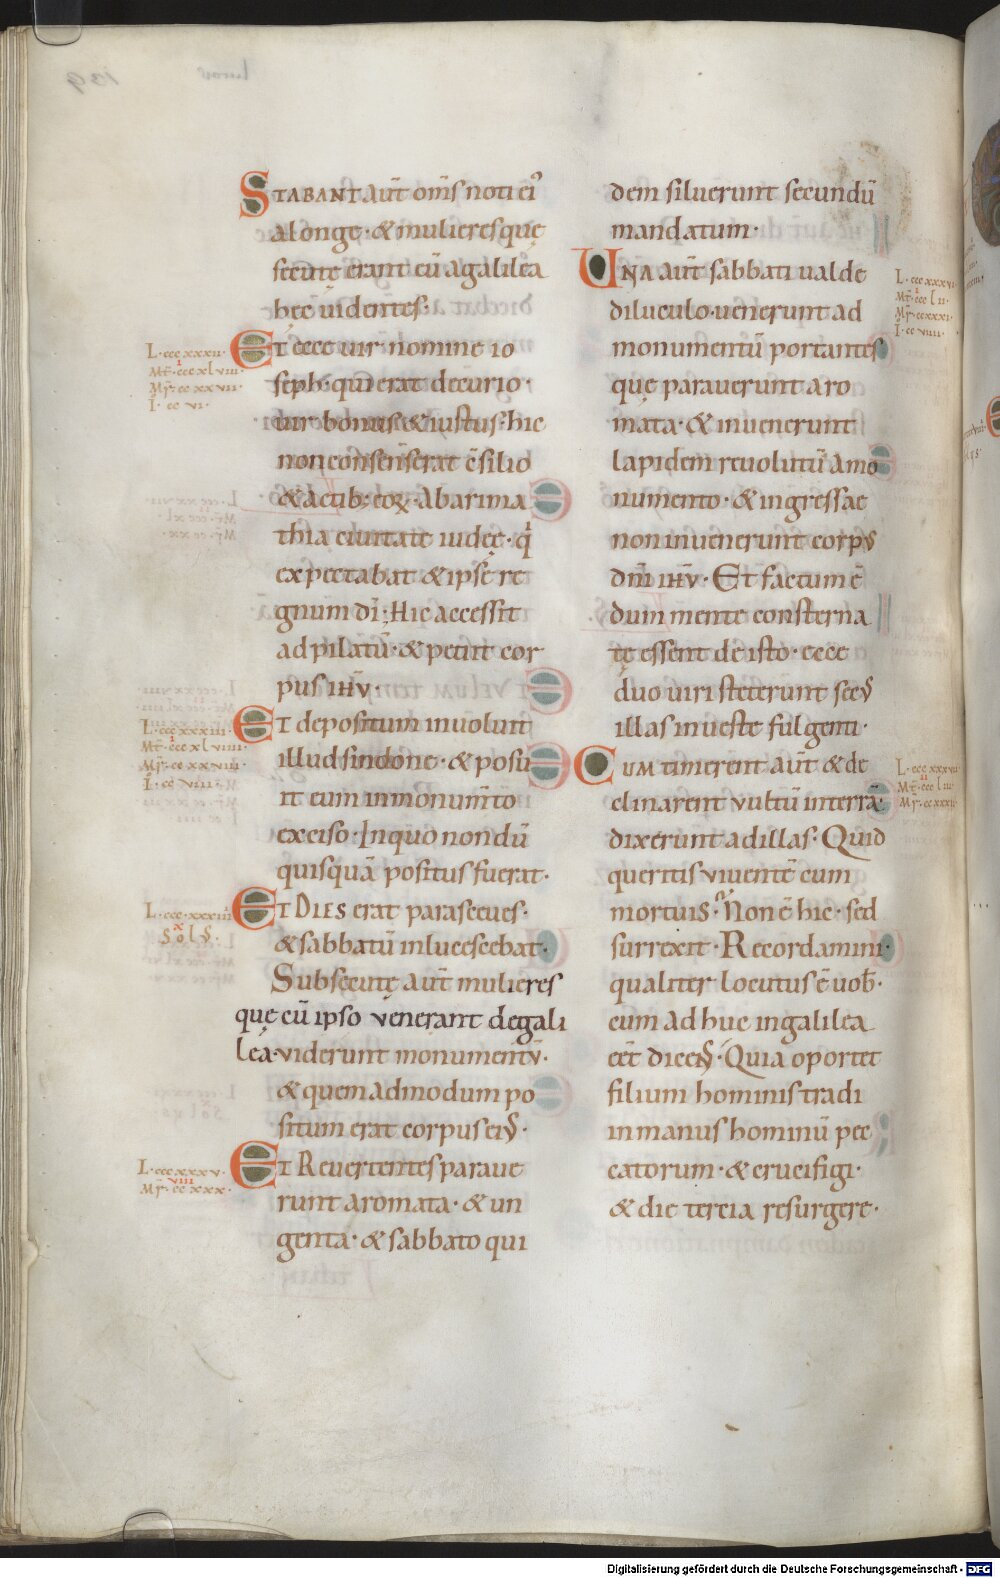 STABANT aut̄ om̄s noti ei᾽
alonge · & mulieres quę
secutę erant cū agalilea
hęc uidentes ·
Et ecce uir nomine io
seph · qui erat decurio ·
uir bonus & iustus · hic
non consenserat c̄silio
& actib; eoꝝ · ab arima
thia ciuitate iudeę · q̇
expectabat & ipse re
gnum dī; Hic accessit
ad pilatū · & petiit cor
pus ihv̄ ·
Et depositum inuoluit
illud sindone · & posu
it eum in monum̄to
exciso · In quo nondū
quisquā positus fuerat ·
Et DIES erat parasceues ·
& sabbatū inlucescebat ·
Subsecutę aut̄ mulieres
quę cū ipso venerant de gali
lea · viderunt monumentv̄ ·
& quem admodum po
situm erat corpus eiꝰ ·
Et Reuertentes paraue
runt aromata · & un
genta · & sabbato qui
dem siluerunt secundū
mandatum ·
UNA aut̄ sabbati ualde
diluculo · uenerunt ad
monumentū portantes
quę parauerunt aro
mata · & inuenerunt
lapidem reuolutū amo
numento · & ingressae
non inuenerunt corpvs
dn̄i ihv̄ · Et factum ē
dum mente consterna
tę essent de isto · ecce
duo uiri steterunt secꝰ
illas in ueste fulgenti ·
CUM timerent aut̄ & de
clinarent vultū interrā ·
dixerunt ad illas · Quid
queritis viventē cum
mortuis · Non ē hic · sed
surrexit · Recordamini
qualiter locutus ē uob̄ ·
cum ad huc in galilea
eēt dicenꝰ · Quia oportet
filium hominis tradi
in manus hominū pec
catorum · & crucifigi ·
& die tercia resurgere ·
L · cccxxxii ·
Mt̄ · cccxlviii ·
Mr̄ · ccxxvii ·
I · ccvi ·
L · cccxxxiii ·
Mt̄ · cccxlviiii ·
Mr̄ · ccxxviii ·
I · ccviii ·
L · cccxxxiiii
SolꝰS ·
L · cccxxxv ·
viii
Mr̄ · ccxxx ·
L · cccxxxvi ·
Mt̄ · ccclii ·
Mr̄ · ccxxxi ·
I · ccviiii ·
Digitalisierung gefördert durch die Deutsche Forschungsgemeinschaft - DFG